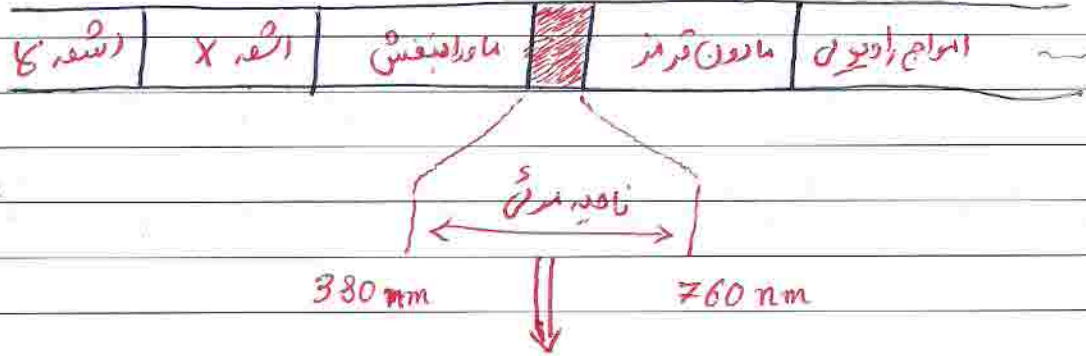 اشعه γ اشعه X ماورابنفش مادون قرمز امواج رادیویی
ناحیه مرئی
380 nm 760 nm